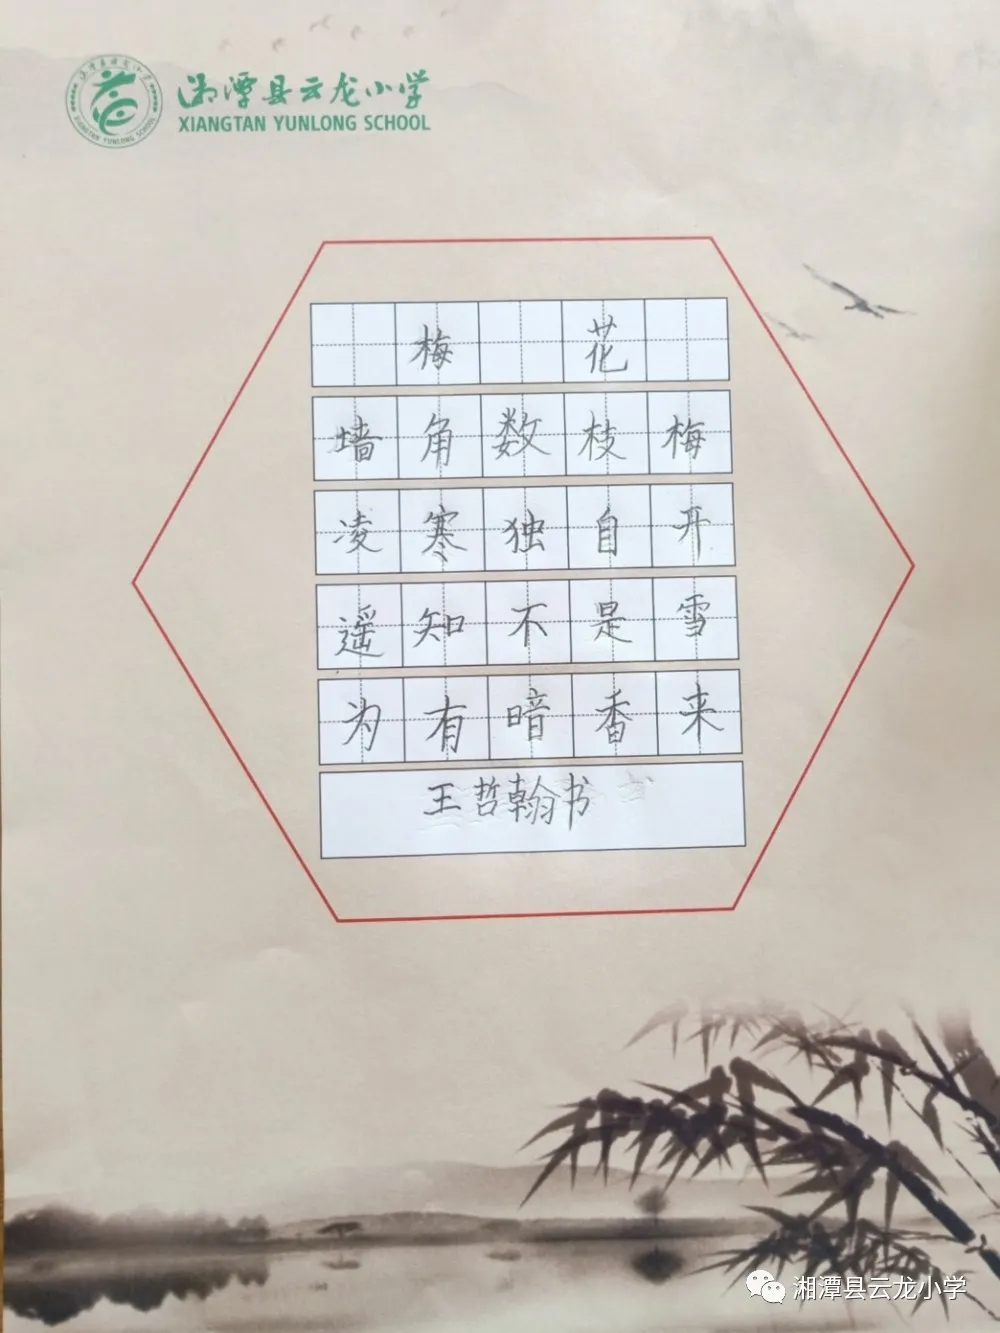 湘潭县云龙小学
XIANGTAN YUNLONG SCHOOL
梅花
墙角数枝梅
凌寒独自开
遥知不是雪
为有暗香来
王哲翰书
湘潭县云龙小学